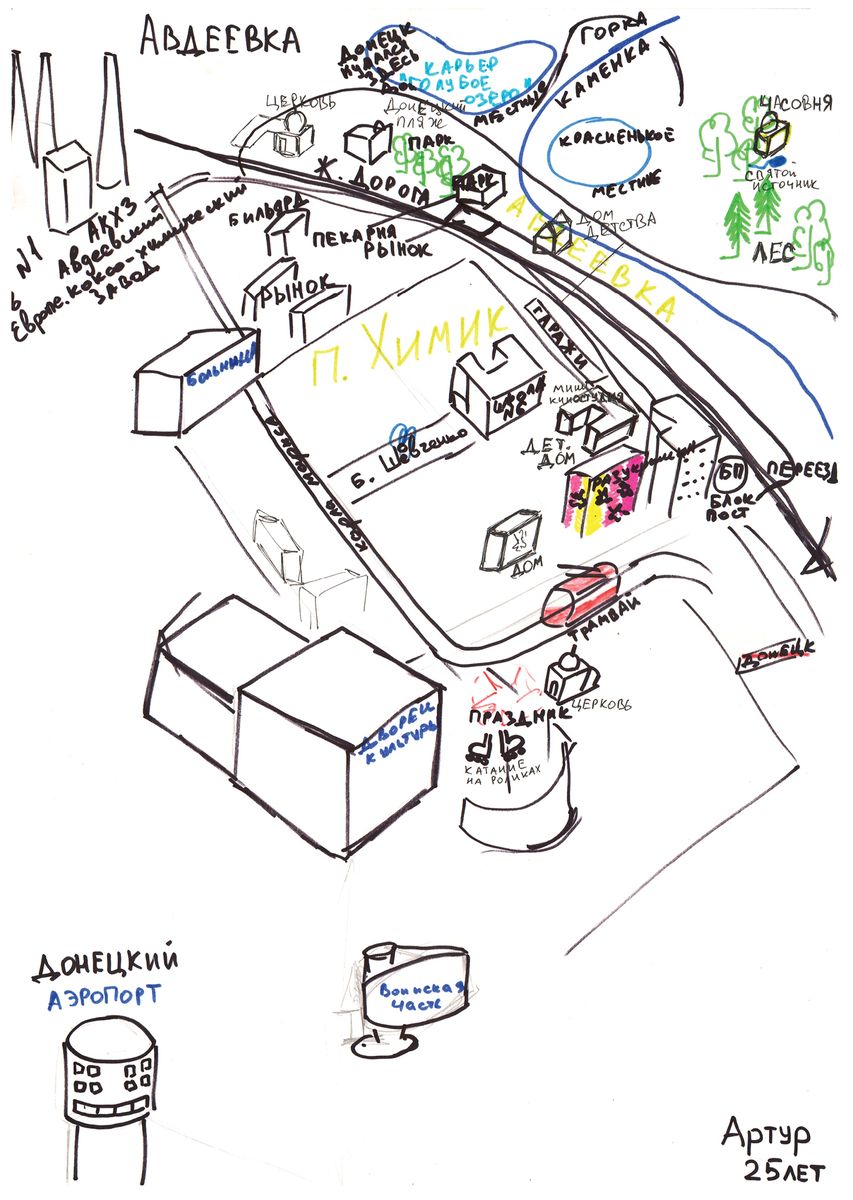 АВДЕЕВКА
ДОНЕЦК
КУПАЛСЯ
ЗДЕСЬ
КАРЬЕР
"ГОЛУБОЕ
ОЗЕРО"
МЕСТНЫЕ
ГОРКА
КАМЕНКА
КРАСНЕНЬКОЕ
МЕСТНЫЕ
ЧАСОВНЯ
СВЯТОЙ
ИСТОЧНИК
ЛЕС
ЦЕРКОВЬ
ДОНЕЦКИЙ
ПЛЯЖ
ПАРК
Ж. ДОРОГА
ПАРК
АВДЕЕВКА
ДОМ
ДЕТСТВА
№1
в
Европе.
АКХЗ
Авдеевский
коксо-химический
ЗАВОД
БИЛЬЯРД
ПЕКАРНЯ
РЫНОК
РЫНОК
ГАРАЖИ
п. Химик
БОЛЬНИЦА
ШКОЛА
№6
КИНОСТУДИЯ
ДЕТ.
ДОМ
Б. Шевченко
карла маркса
БП
БЛОК
ПОСТ
ПЕРЕЕЗД
ДОМ
ТРАМВАЙ
ДОНЕЦК
ЦЕРКОВЬ
ПРАЗДНИК
КАТАНИЕ
НА РОЛИКАХ
ДВОРЕЦ
КУЛЬТУРЫ
ДОНЕЦКИЙ
АЭРОПОРТ
Воинская
часть
Артур
25 ЛЕТ